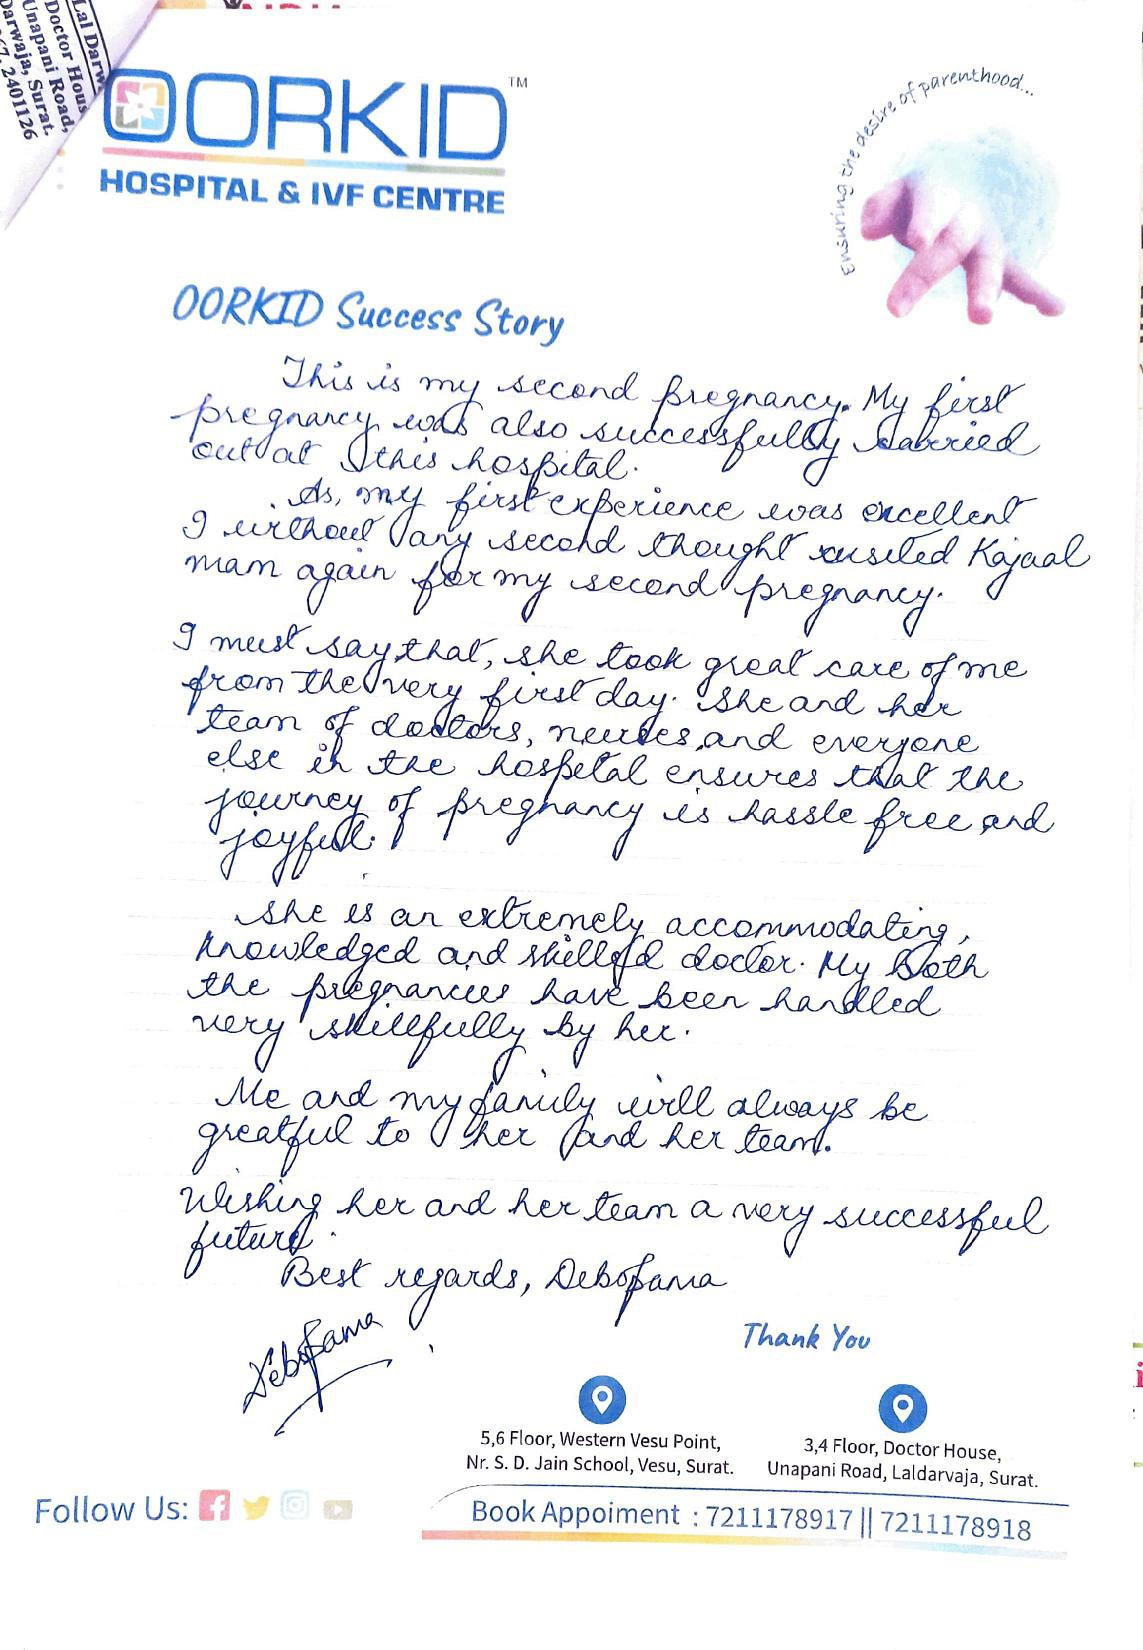 Lal Darw
Doctor Hous
Unapani Road,
Darwaja, Surat.
67, 2401126
OORKID™
HOSPITAL & IVF CENTRE
Ensuring the desire of parenthood...
OORKID Success Story
This is my second pregnancy. My first
pregnancy was also successfully carried
out at this hospital.
As, my first experience was excellent
I without any second thought Kajaal
mam again for my second pregnancy.
I must say that, she took great care of me
from the very first day. She and her
team of doctors, nurses, and everyone
else in the hospital ensures that the
journey of pregnancy is hassle free and
joyful.
She is an extremely accommodating,
knowledged and skilled doctor. My Both
the pregnancies have been handled
very skillfully by her.
Me and my family will always be
greatful to her and her team.
Wishing her and her team a very successful
future.
Best regards, Debofama
Debofama
Thank You
5,6 Floor, Western Vesu Point,
Nr. S. D. Jain School, Vesu, Surat.
3,4 Floor, Doctor House,
Unapani Road, Laldarvaja, Surat.
Follow Us:
Book Appoiment : 7211178917 || 7211178918